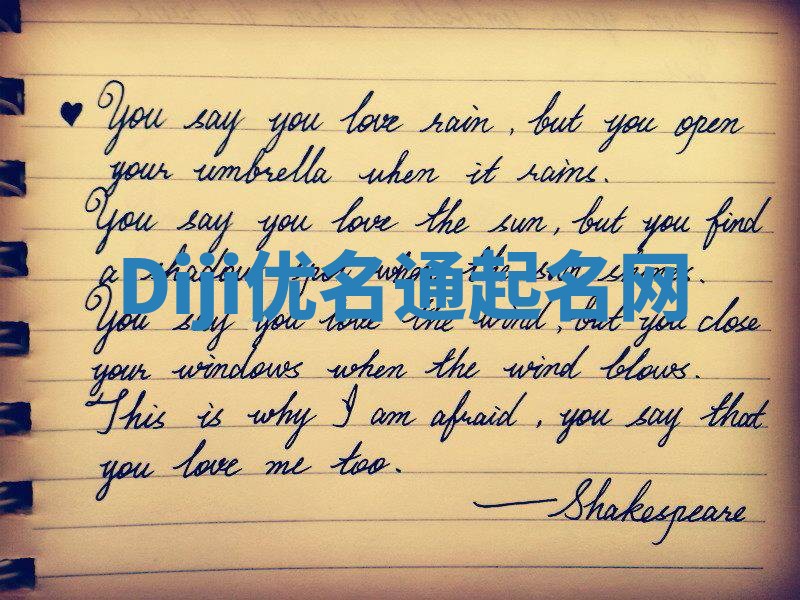 ♥ You say you love rain, but you open
your umbrella when it rains.
You say you love the sun, but you find
a shadow spot when the sun shines.
Diji优名通起名网
You say you love the wind, but you close
your windows when the wind blows.
This is why I am afraid, you say that
you love me too.
— Shakespeare